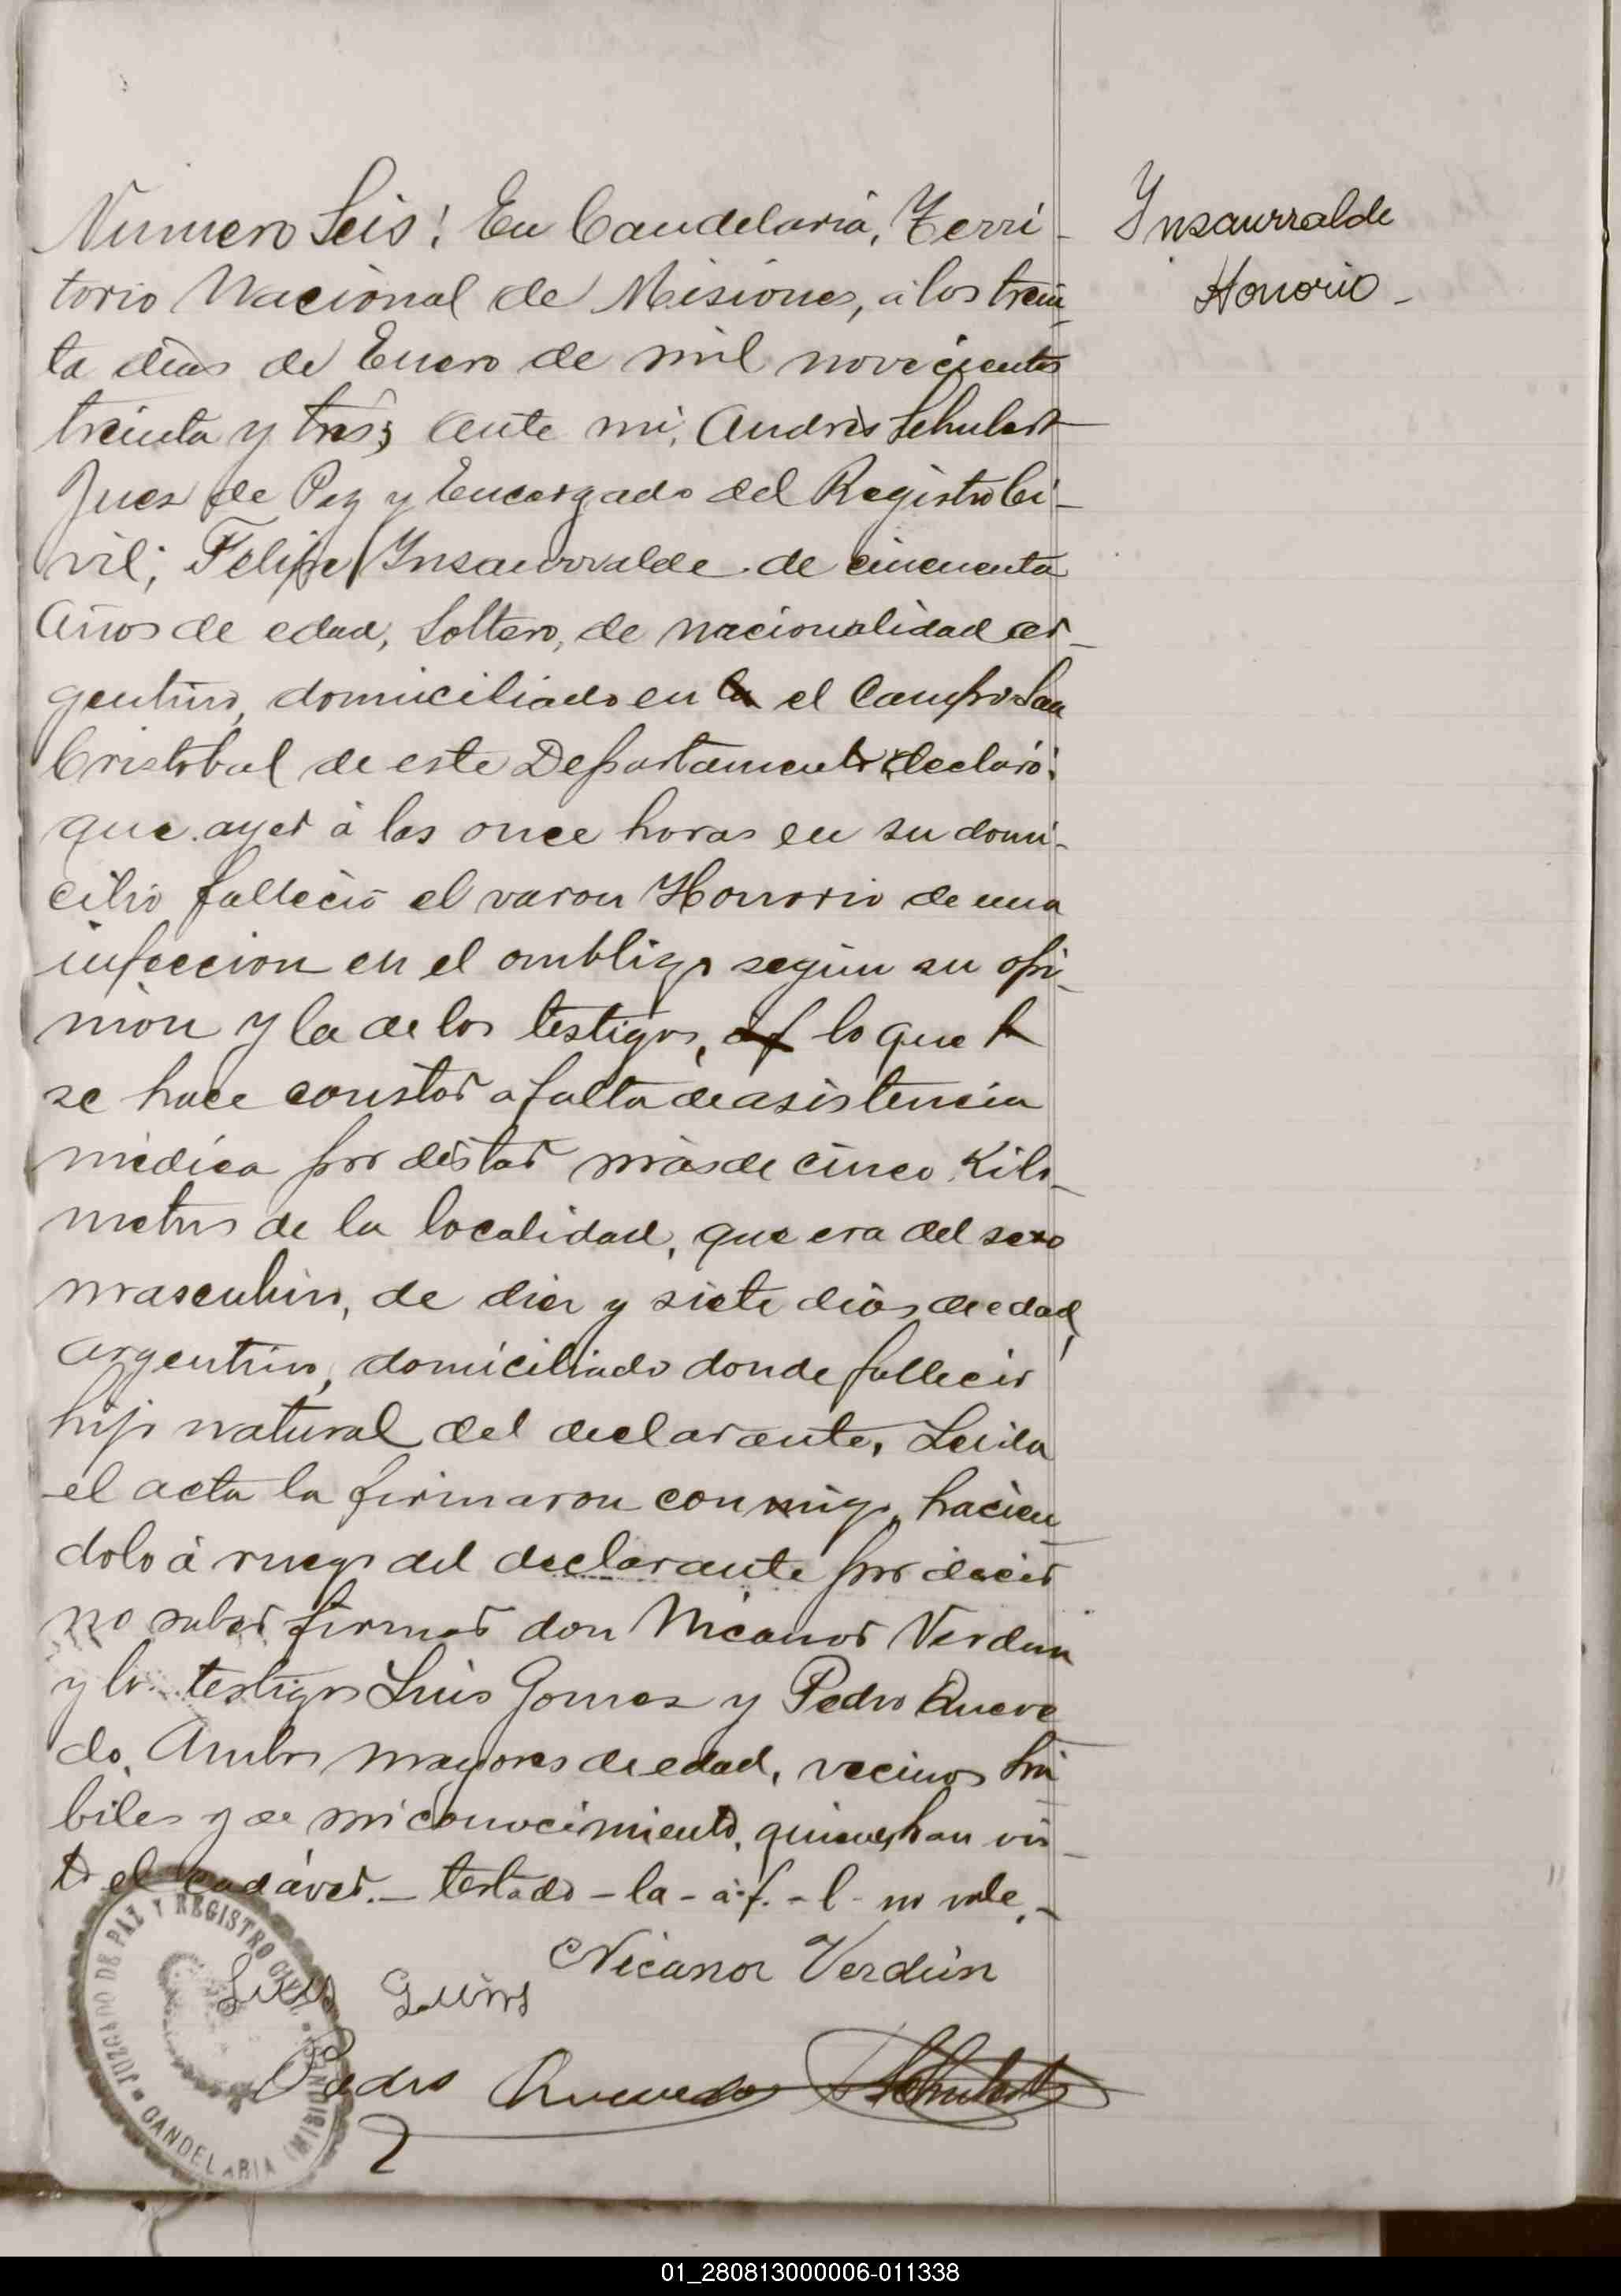 Numero Seis: En Candelaria, Terri-
torio Nacional de Misiones, á los trein-
ta dias de Enero de mil novecientos
treinta y tres; ante mi, Andrés Schubert
Juez de Paz y Encargado del Registro Ci-
vil; Felipe Ynsaurralde de cincuenta
años de edad, Soltero, de nacionalidad ar-
gentino, domiciliado en la el Campo San
Cristobal de este Departamento declaró:
que ayer á las once horas en su domi-
cilio falleció el varon Honorio de una
infeccion en el ombligo según su opi-
nion y la de los testigos, af lo que l
se hace constar a falta de asistencia
médica por distar más de cinco Kilo-
metros de la localidad, que era del sexo
masculino, de diez y siete dias de edad,
argentino, domiciliado donde fallecio
hijo natural del declarante, Leida
el acta la firmaron conmigo, hacien-
dolo á ruego del declarante por decir
no saber firmar don Nicanor Verdun
y los testigos Luis Gomez y Pedro Queve-
do, Ambos mayores de edad, vecinos há-
biles y de mi conocimiento, quienes han vis-
to el cadáver.- testado - la - a.f. - l - no vale.-
Nicanor Verdún
Luis
Pedro Quevedo Schubert
Ynsaurralde
Honorio -
JUZGADO DE PAZ Y REGISTRO CIVIL
CANDELARIA
01_280813000006-011338